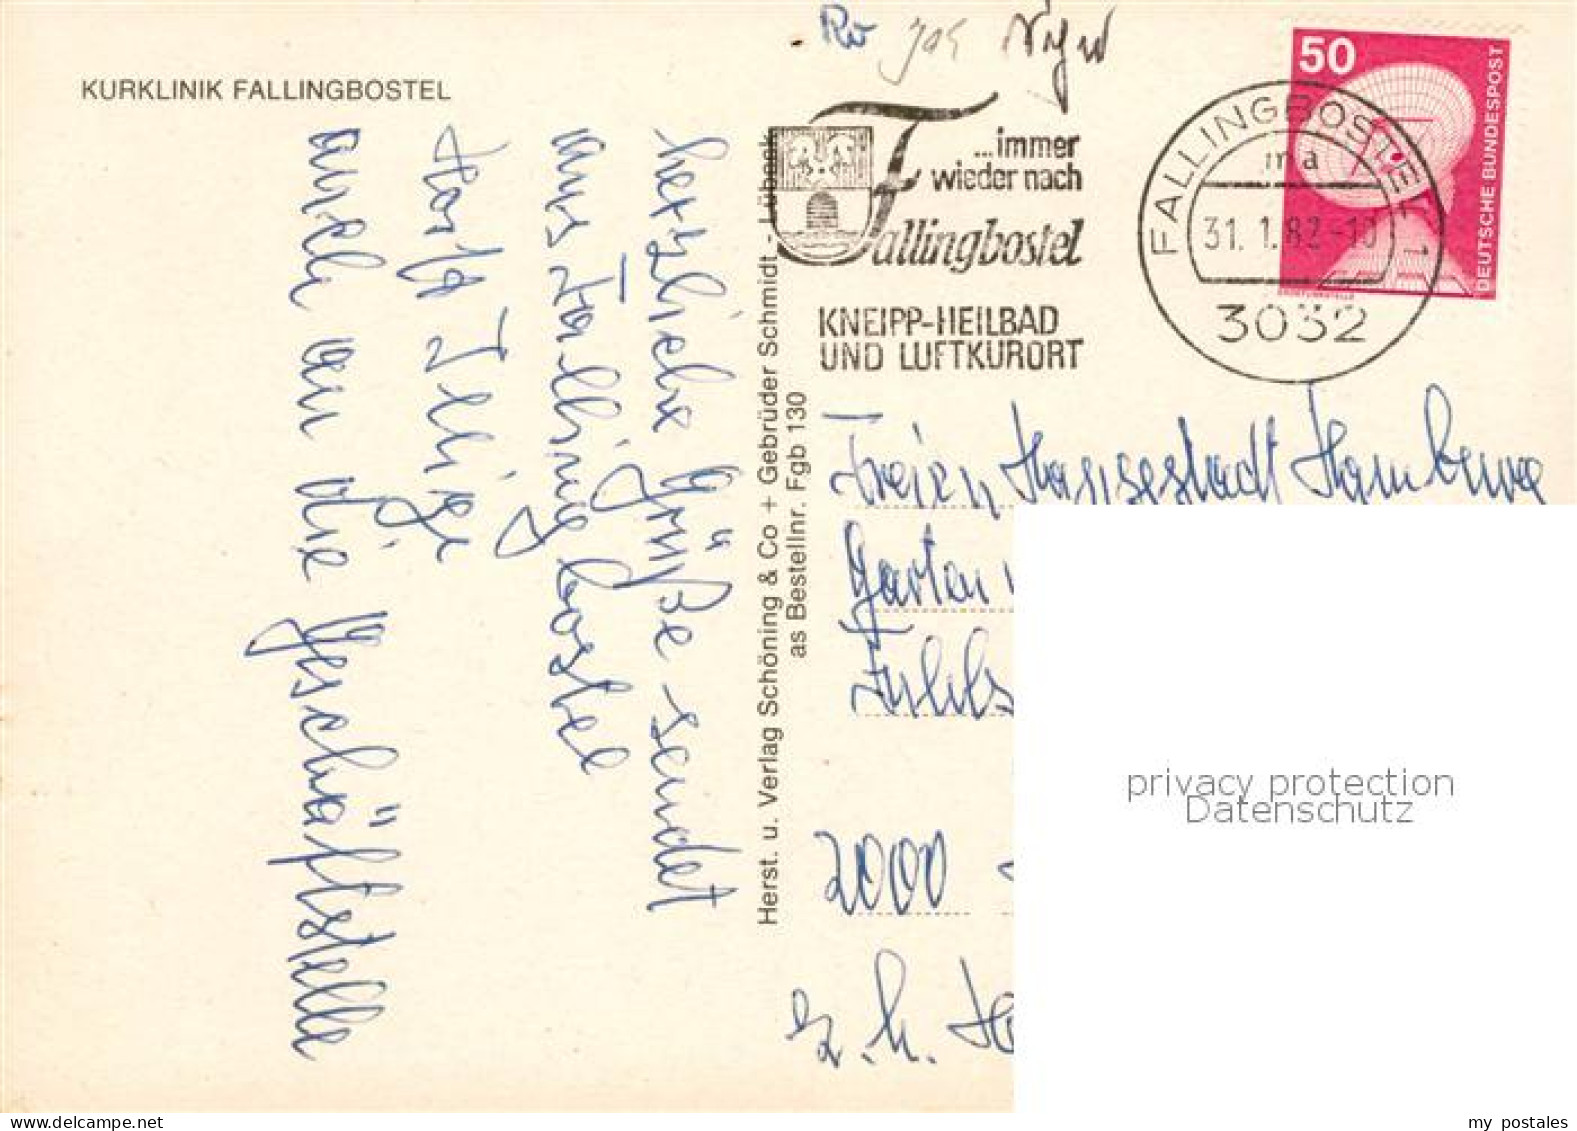 KURKLINIK FALLINGBOSTEL
herzliche Grüße sendet
aus Fallingbostel
Horst Illige
auch an die Geschäftsstelle
Herst. u. Verlag Schöning & Co + Gebrüder Schmidt - Lübeck
as Bestellnr. Fgb 130
...immer
wieder nach
Fallingbostel
KNEIPP-HEILBAD
UND LUFTKURORT
FALLINGBOSTEL 1
ma
31. 1. 82 -10
3032
50
DEUTSCHE BUNDESPOST
Freien Hansestadt Hamburg
Garten
2000
z. h.
privacy protection
Datenschutz
my postales